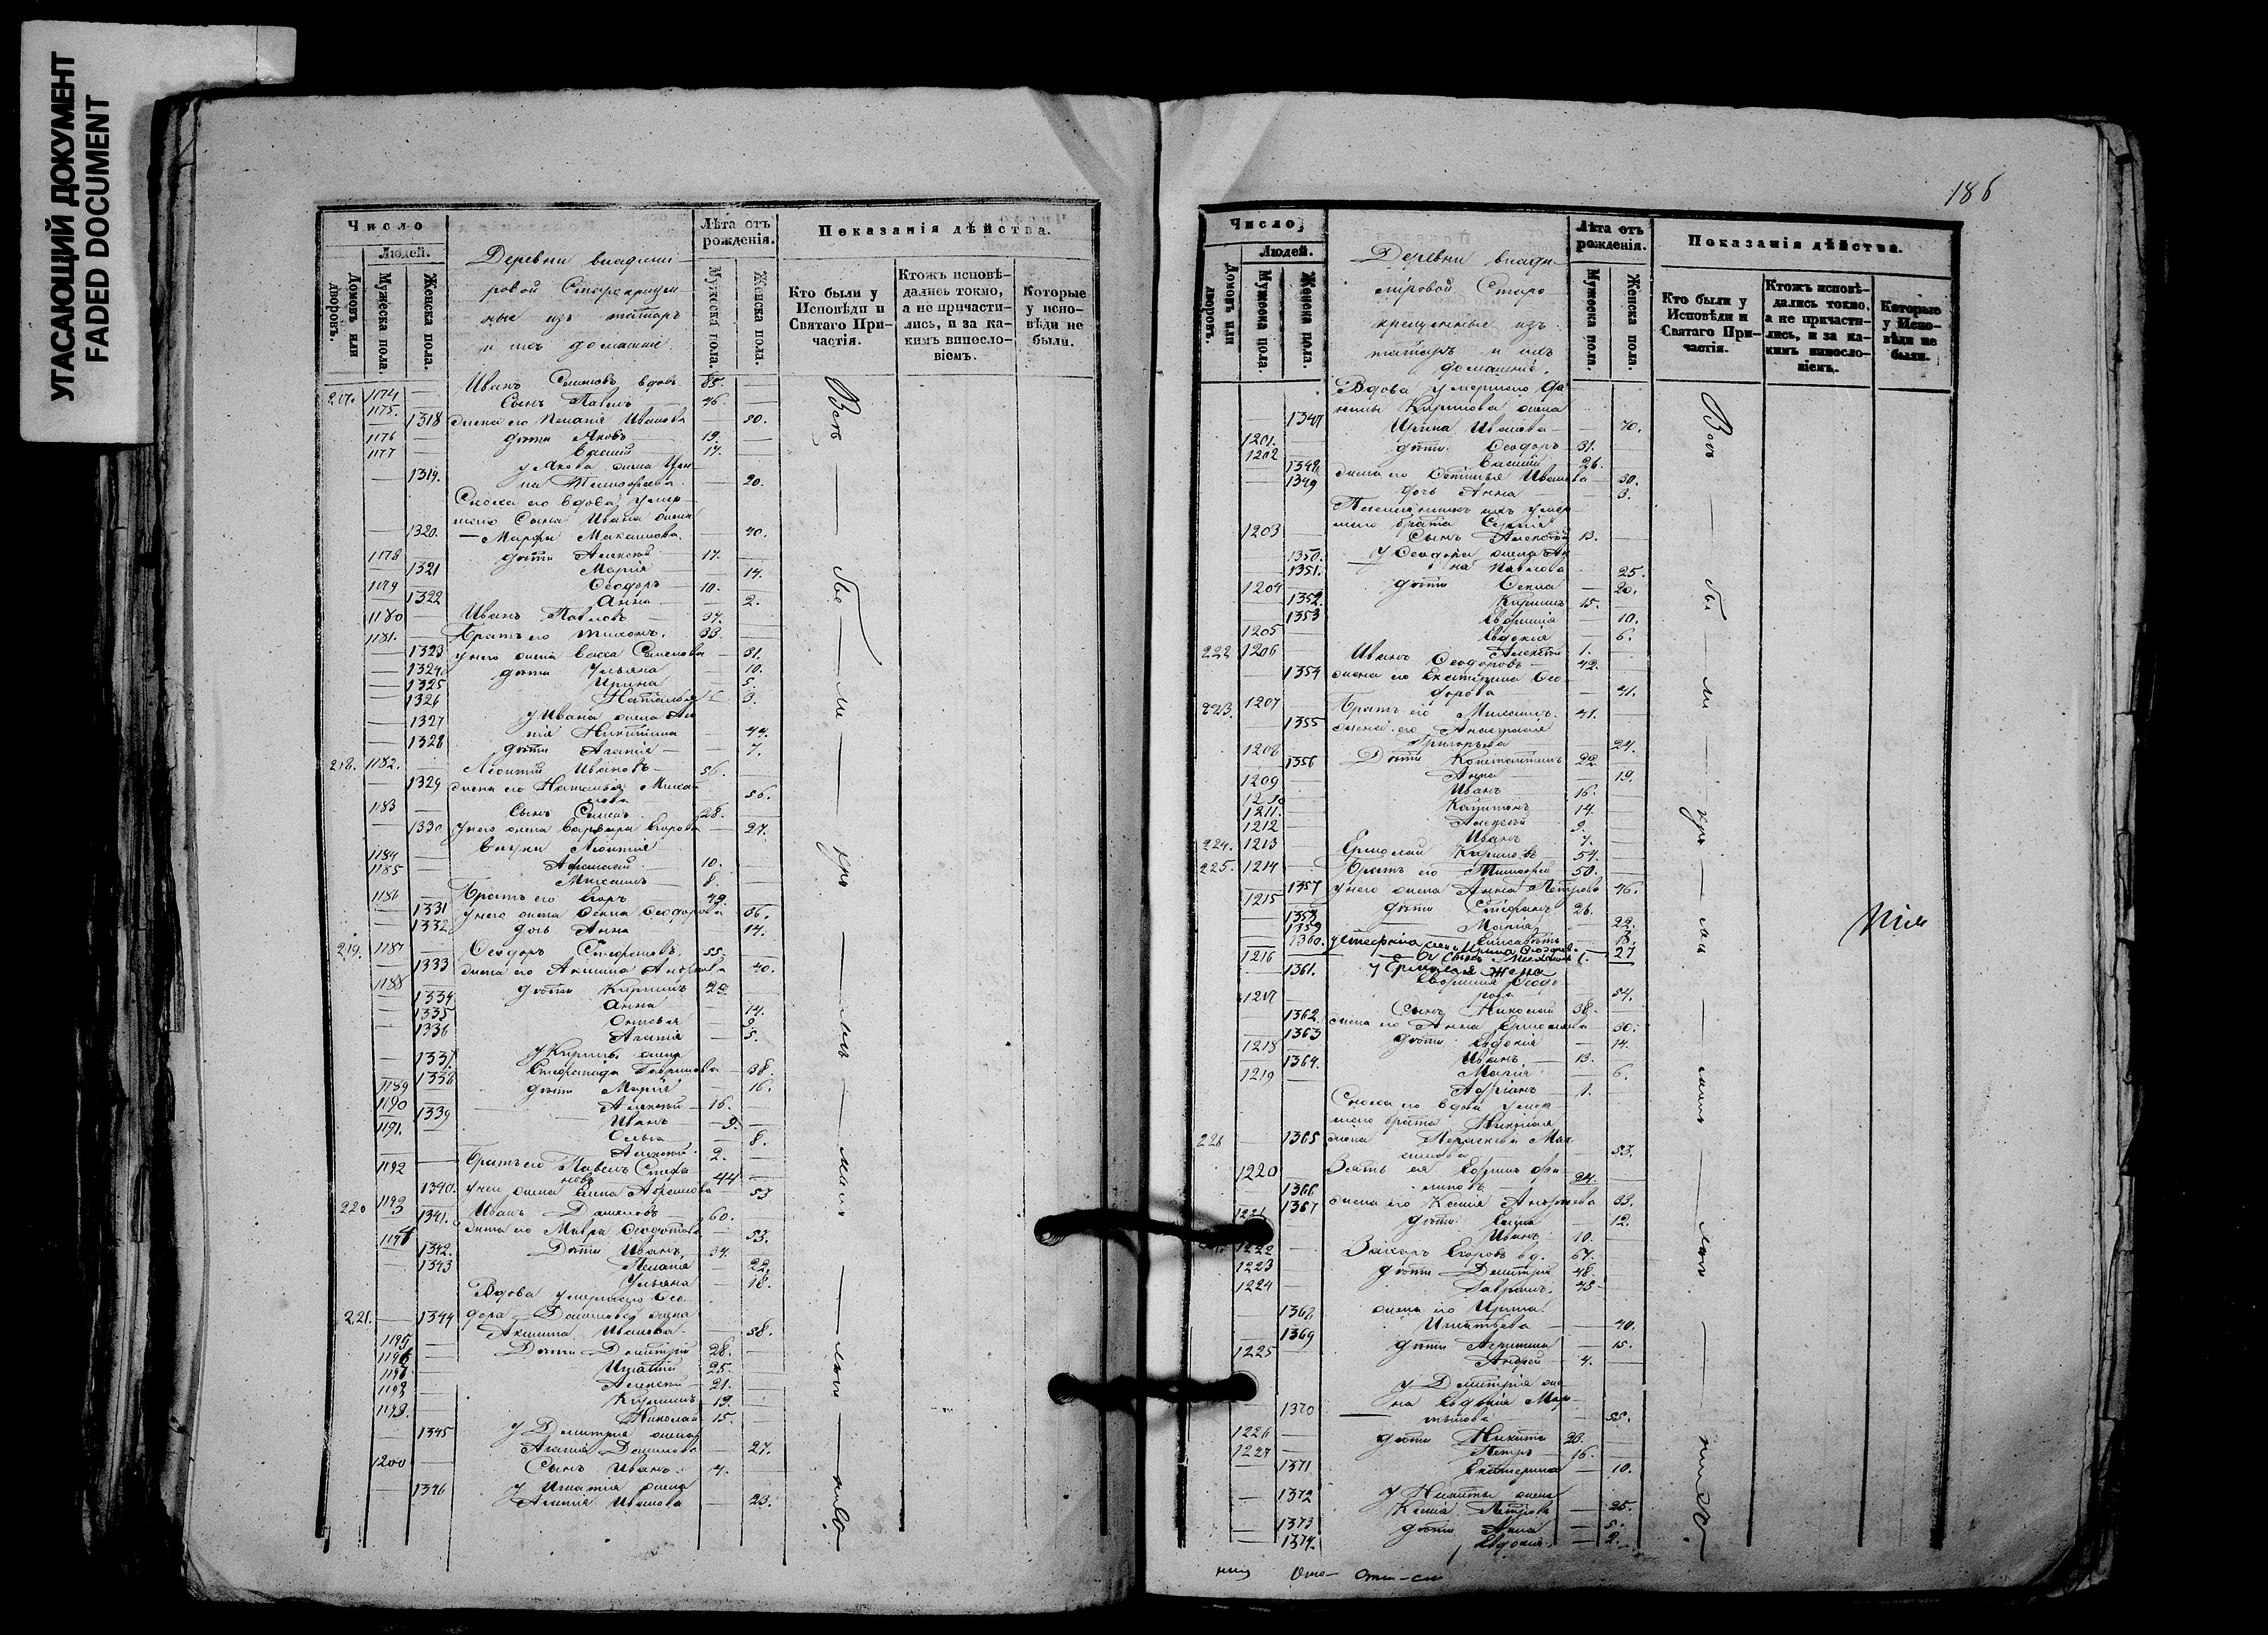 УГАСАЮЩИЙ ДОКУМЕНТ
FADED DOCUMENT
Число
Людей.
Домовъ или дворовъ.
Мужеска пола.
Женска пола.
Деревни владими-
ровой Старокрещен-
ные изъ татаръ
и ихъ домашніе.
Лѣта отъ рожденія.
Мужеска пола.
Женска пола.
Показанія дѣйства.
Кто были у Исповѣди и Святаго При-частія.
Ктожъ исповѣ-дались токмо, а не причасти-лись, и за ка-кимъ винносло-віемъ.
Которые у испо-вѣди не были.
217. 1174 Иванъ Семеновъ вдовъ 85.
1175. Сынъ Павелъ 46.
1318 жена его Пелагія Иванова 50.
1176 дѣти Яковъ 19.
1177 Василій 17.
1319. у Якова жена Ирина Тимофеева 20.
Сноха его вдова умер-
шаго Сына Ивана жена
1320. Марфа Максимова 40.
1178 дѣти Алексей 17.
1321 Марія 14.
1179 Ѳеодоръ 10.
1322 Анна 2.
1180 Иванъ Павловъ 37.
1181. Братъ его Тихонъ. 33.
1323 у него жена Васса Семенова 31.
1324 дѣти Ульяна 10.
1325 Ирина 5.
1326 Наталья 3.
1327 у Ивана жена
Никитина 44.
1328 дѣти Агафія 7.
218. 1182. Леонтій Ивановъ 56.
1329 жена его Наталья Михай-
лова 56.
1183 Сынъ Семенъ 28.
1330 у него жена Варвара Егорова 27.
внуки Леонтія
1184 Афанасій 10.
1185 Михаилъ 8.
1186 Братъ его Егоръ 49.
1331 у него жена Ѳекла Ѳеодорова 36.
1332 дочь Анна 14.
219. 1187 Ѳеодоръ Стефановъ. 55.
1333 жена его Акилина Андреева 40.
1188 дѣти Кириллъ 29.
1334 Анна 14.
1335 9.
1336 Агафія 5.
1337. у Кирилы жена
Стефанида Гаврилова 38.
1338 дѣти Марія 16.
1189 Алексей 16.
1190 Иванъ 9.
1339 Ольга 8.
1191. Алексей 2.
1192 Братъ его Павелъ Стефа-
новъ 44
1340. у него жена Елена Абрамова 53
220 1193 Иванъ Даниловъ 60.
1341. жена его Мавра Ѳеодотова 53.
1194 Дѣти Иванъ, 34.
1342. Пелагія 22.
1343 Ульяна 18.
Вдова умершаго Ѳео-
221. 1344 дора Данилова жена
Акилина Иванова 58.
1195 Дѣти Димитрій 28.
1196 Игнатій 25.
1197 Алексей 21.
1198 Кириллъ 19.
1199. Николай 15.
1345 у Димитрія жена
Агафія Данилова 27.
1200 Сынъ Иванъ 4.
1346 у Игнатія жена
Агафія Иванова 23.
Всѣ
186
Число
Людей.
Домовъ или дворовъ.
Мужеска пола.
Женска пола.
Деревни влади-
мировой Старо-
крещенные изъ
татаръ и ихъ
домашніе.
Лѣта отъ рожденія.
Мужеска пола.
Женска пола.
Показанія дѣйства.
Кто были у Исповѣди и Святаго При-частія.
Ктожъ исповѣ-дались токмо, а не причасти-лись, и за ка-кимъ винносло-віемъ.
Которые у Испо-вѣди не были.
Вдова умершаго Да-
нилы Кирилова жена
1347 Ирина Иванова 70.
1201. дѣти Ѳеодоръ 31.
1202 Василій 26.
1348. жена его Иванова 30.
1349 дочь Анна 3.
Племянникъ ихъ умер-
шаго брата Сергія
1203 Сынъ Алексей 13.
1350. у Ѳеодора жена Ан-
на Павлова 25.
1351. дѣти Ѳекла 20.
1204 Кириллъ 15.
1352. Евфимія 10.
1353 Евдокія 6.
1205 Алексей 1.
222 1206 Иванъ Ѳеодоровъ 42.
1354 жена его Екатерина Ѳео-
дорова 41.
223. 1207 Братъ его Михаилъ 41.
1355 жена его Анастасія
Григорьева 24.
1208 Дѣти Константинъ 22.
1356 Анна 19.
1209 Иванъ 16.
1210 Капитонъ 14.
1211. Алексей 9.
1212 Иванъ 7.
224. 1213 Ермолай Кириловъ 54.
225. 1214 Братъ его Тимофей 50.
1357 у него жена Анна Петрова 46.
1215 дѣти Стефанъ 26.
1358 Марія 22.
1359 Елисавета 13.
1360. у Стефана жена Ирина 27
1216 Сынъ 1.
1361. у Ермолая жена
Евфимія Ѳеодо-
рова 54.
1217 Сынъ Николай 38.
1362. жена его Анна Ермолаева 30.
1363 дѣти Евдокія 14.
1218 Иванъ 13.
1364. Марія 6.
1219 Адріанъ 1.
Сноха его вдова умер-
шаго брата Николая
226 1365 жена Параскева Мак-
симова 53.
1220 Зять ея Ефремъ Фи-
липовъ 34.
1366 жена его Ксенія Андреева 33.
1367 дѣти Елена 12.
1221 Иванъ 10.
1222 Захаръ Егоровъ вд. 67.
1223 дѣти Димитрій 48.
1224 Гаврилъ 45
1368 жена его Ирина
Игнатьева 40.
1369 дѣти Агрипина 15.
1225 Андрей 4.
у Димитрія же-
1370 на Евдокія Мар-
тынова 55.
1226 дѣти Никита 23.
1227 Петръ 16.
1371 Екатерина 10.
1372 у Никиты жена
Ксенія Петрова 25.
1373 дѣти Анна 5.
1374. Евдокія 2.
Всѣ